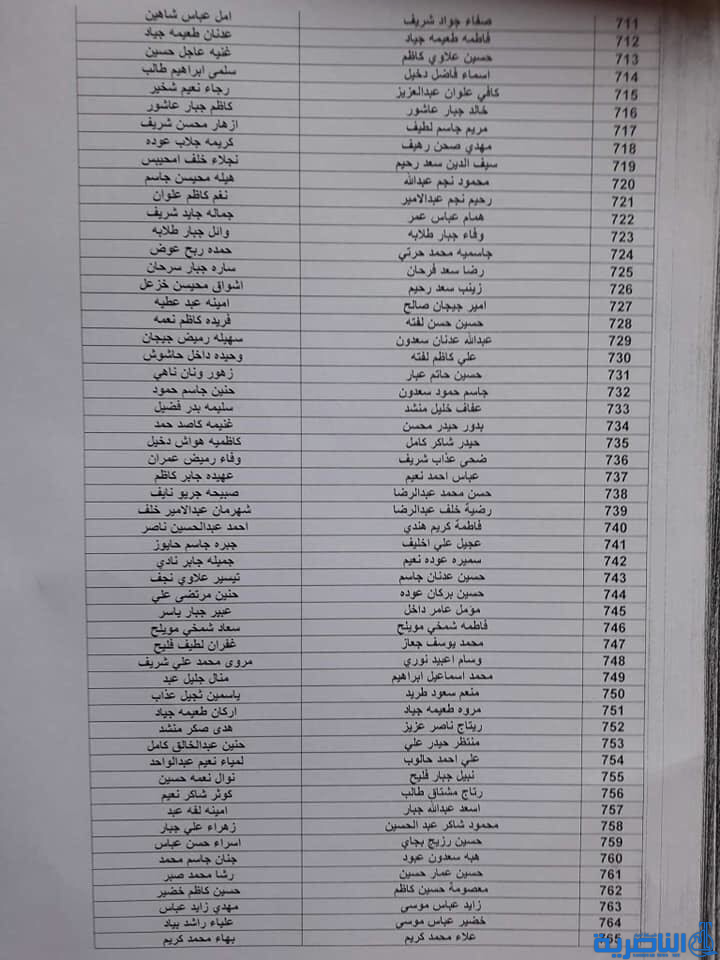 711 صفاء جواد شريف امل عباس شاهين
712 فاطمه طعيمه جياد عدنان طعيمه جياد
713 حسين علاوي كاظم غنيه عاجل حسين
714 اسماء فاضل دخيل سلمى ابراهيم طالب
715 كافي علوان عبدالعزيز رجاء نعيم شخير
716 خالد جبار عاشور كاظم جبار عاشور
717 مريم جاسم لطيف ازهار محسن شريف
718 مهدي صحن رهيف كريمه جلاب عوده
719 سيف الدين سعد رحيم نجلاء خلف امحيبس
720 محمود نجم عبدالله هيله محيسن جاسم
721 رحيم نجم عبدالامير نغم كاظم علوان
722 همام عباس عمر جماله جايد شريف
723 وفاء جبار طلابه وائل جبار طلابه
724 جاسميه محمد حرتي حمده ريح عوض
725 رضا سعد فرحان ساره جبار سرحان
726 زينب سعد رحيم اشواق محيسن خزعل
727 امير جيجان صالح امينه عبد عطيه
728 حسين حسن لفته فريده كاظم نعمه
729 عبدالله عدنان سعدون سهيله رميض جيجان
730 علي كاظم لفته وحيده داخل حاشوش
731 حسين حاتم عبار زهور ونان ناهي
732 جاسم حمود سعدون حنين جاسم حمود
733 عفاف خليل منشد سليمه بدر فضيل
734 بدور حيدر محسن غنيمه كاصد حمد
735 حيدر شاكر كامل كاظميه هواش دخيل
736 ضحى عذاب شريف وفاء رميض عمران
737 عباس احمد نعيم عهيده جابر كاظم
738 حسن محمد عبدالرضا صبيحه جريو نايف
739 رضية خلف عبدالرضا شهرمان عبدالامير خلف
740 فاطمة كريم هندي احمد عبدالحسين ناصر
741 عجيل علي اخليف جبره جاسم حايوز
742 سميره عوده نعيم جميله جابر نادي
743 حسين عدنان جاسم تيسير علاوي نجف
744 حسين بركان عوده حنين مرتضى علي
745 مؤمل عامر داخل عبير جبار ياسر
746 فاطمه شمخي مويلح سعاد شمخي مويلح
747 محمد يوسف جعاز غفران لطيف فليح
748 وسام اعبيد نوري مروى محمد علي شريف
749 محمد اسماعيل ابراهيم منال جليل عبد
750 منعم سعود طريد ياسمين ثجيل عذاب
751 مروه طعيمه جياد اركان طعيمه جياد
752 ريتاج ناصر عزيز هدى صكر منشد
753 منتظر حيدر علي حنين عبدالخالق كامل
754 علي احمد حالوب لمياء نعيم عبدالواحد
755 نبيل جبار فليح نوال نعمه حسين
756 رتاج مشتاق طالب كوثر شاكر نعيم
757 اسعد عبدالله جبار امينه لفه عبد
758 محمود شاكر عبد الحسين زهراء علي جبار
759 حسين رزيج بجاي اسراء حسن عباس
760 هبه سعدون عبود جنان جاسم محمد
761 حسين عمار حسين رشا محمد صبر
762 معصومة حسين كاظم حسين كاظم خضير
763 زايد عباس موسى مهدي زايد عباس
764 خضير عباس موسى علياء راشد بياد
765 علاء محمد كريم بهاء محمد كريم
الناصرية